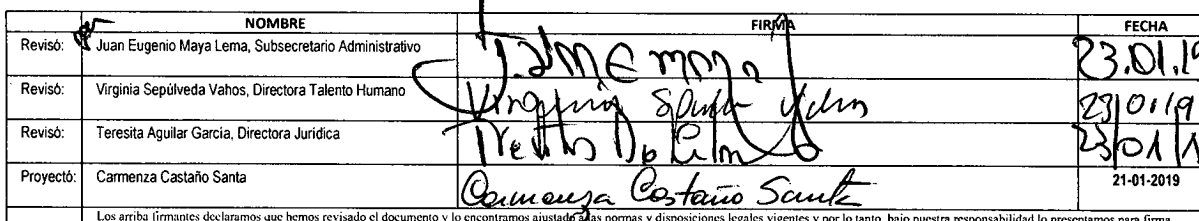 NOMBRE FIRMA FECHA
Revisó: Juan Eugenio Maya Lema, Subsecretario Administrativo 23.01.19
Revisó: Virginia Sepúlveda Vahos, Directora Talento Humano 23/01/19
Revisó: Teresita Aguilar García, Directora Jurídica 23/01/1
Proyectó: Carmenza Castaño Santa Carmenza Castaño Santa 21-01-2019
Los arriba firmantes declaramos que hemos revisado el documento y lo encontramos ajustado a las normas y disposiciones legales vigentes y por lo tanto, bajo nuestra responsabilidad lo presentamos para firma